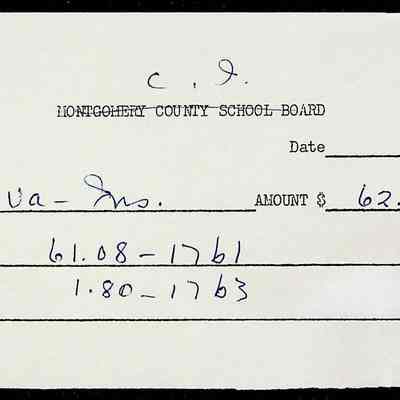 C. I.
MONTGOMERY COUNTY SCHOOL BOARD
Date
va - Ins. AMOUNT $ 62.
61.08 - 1761
1.80 - 1763